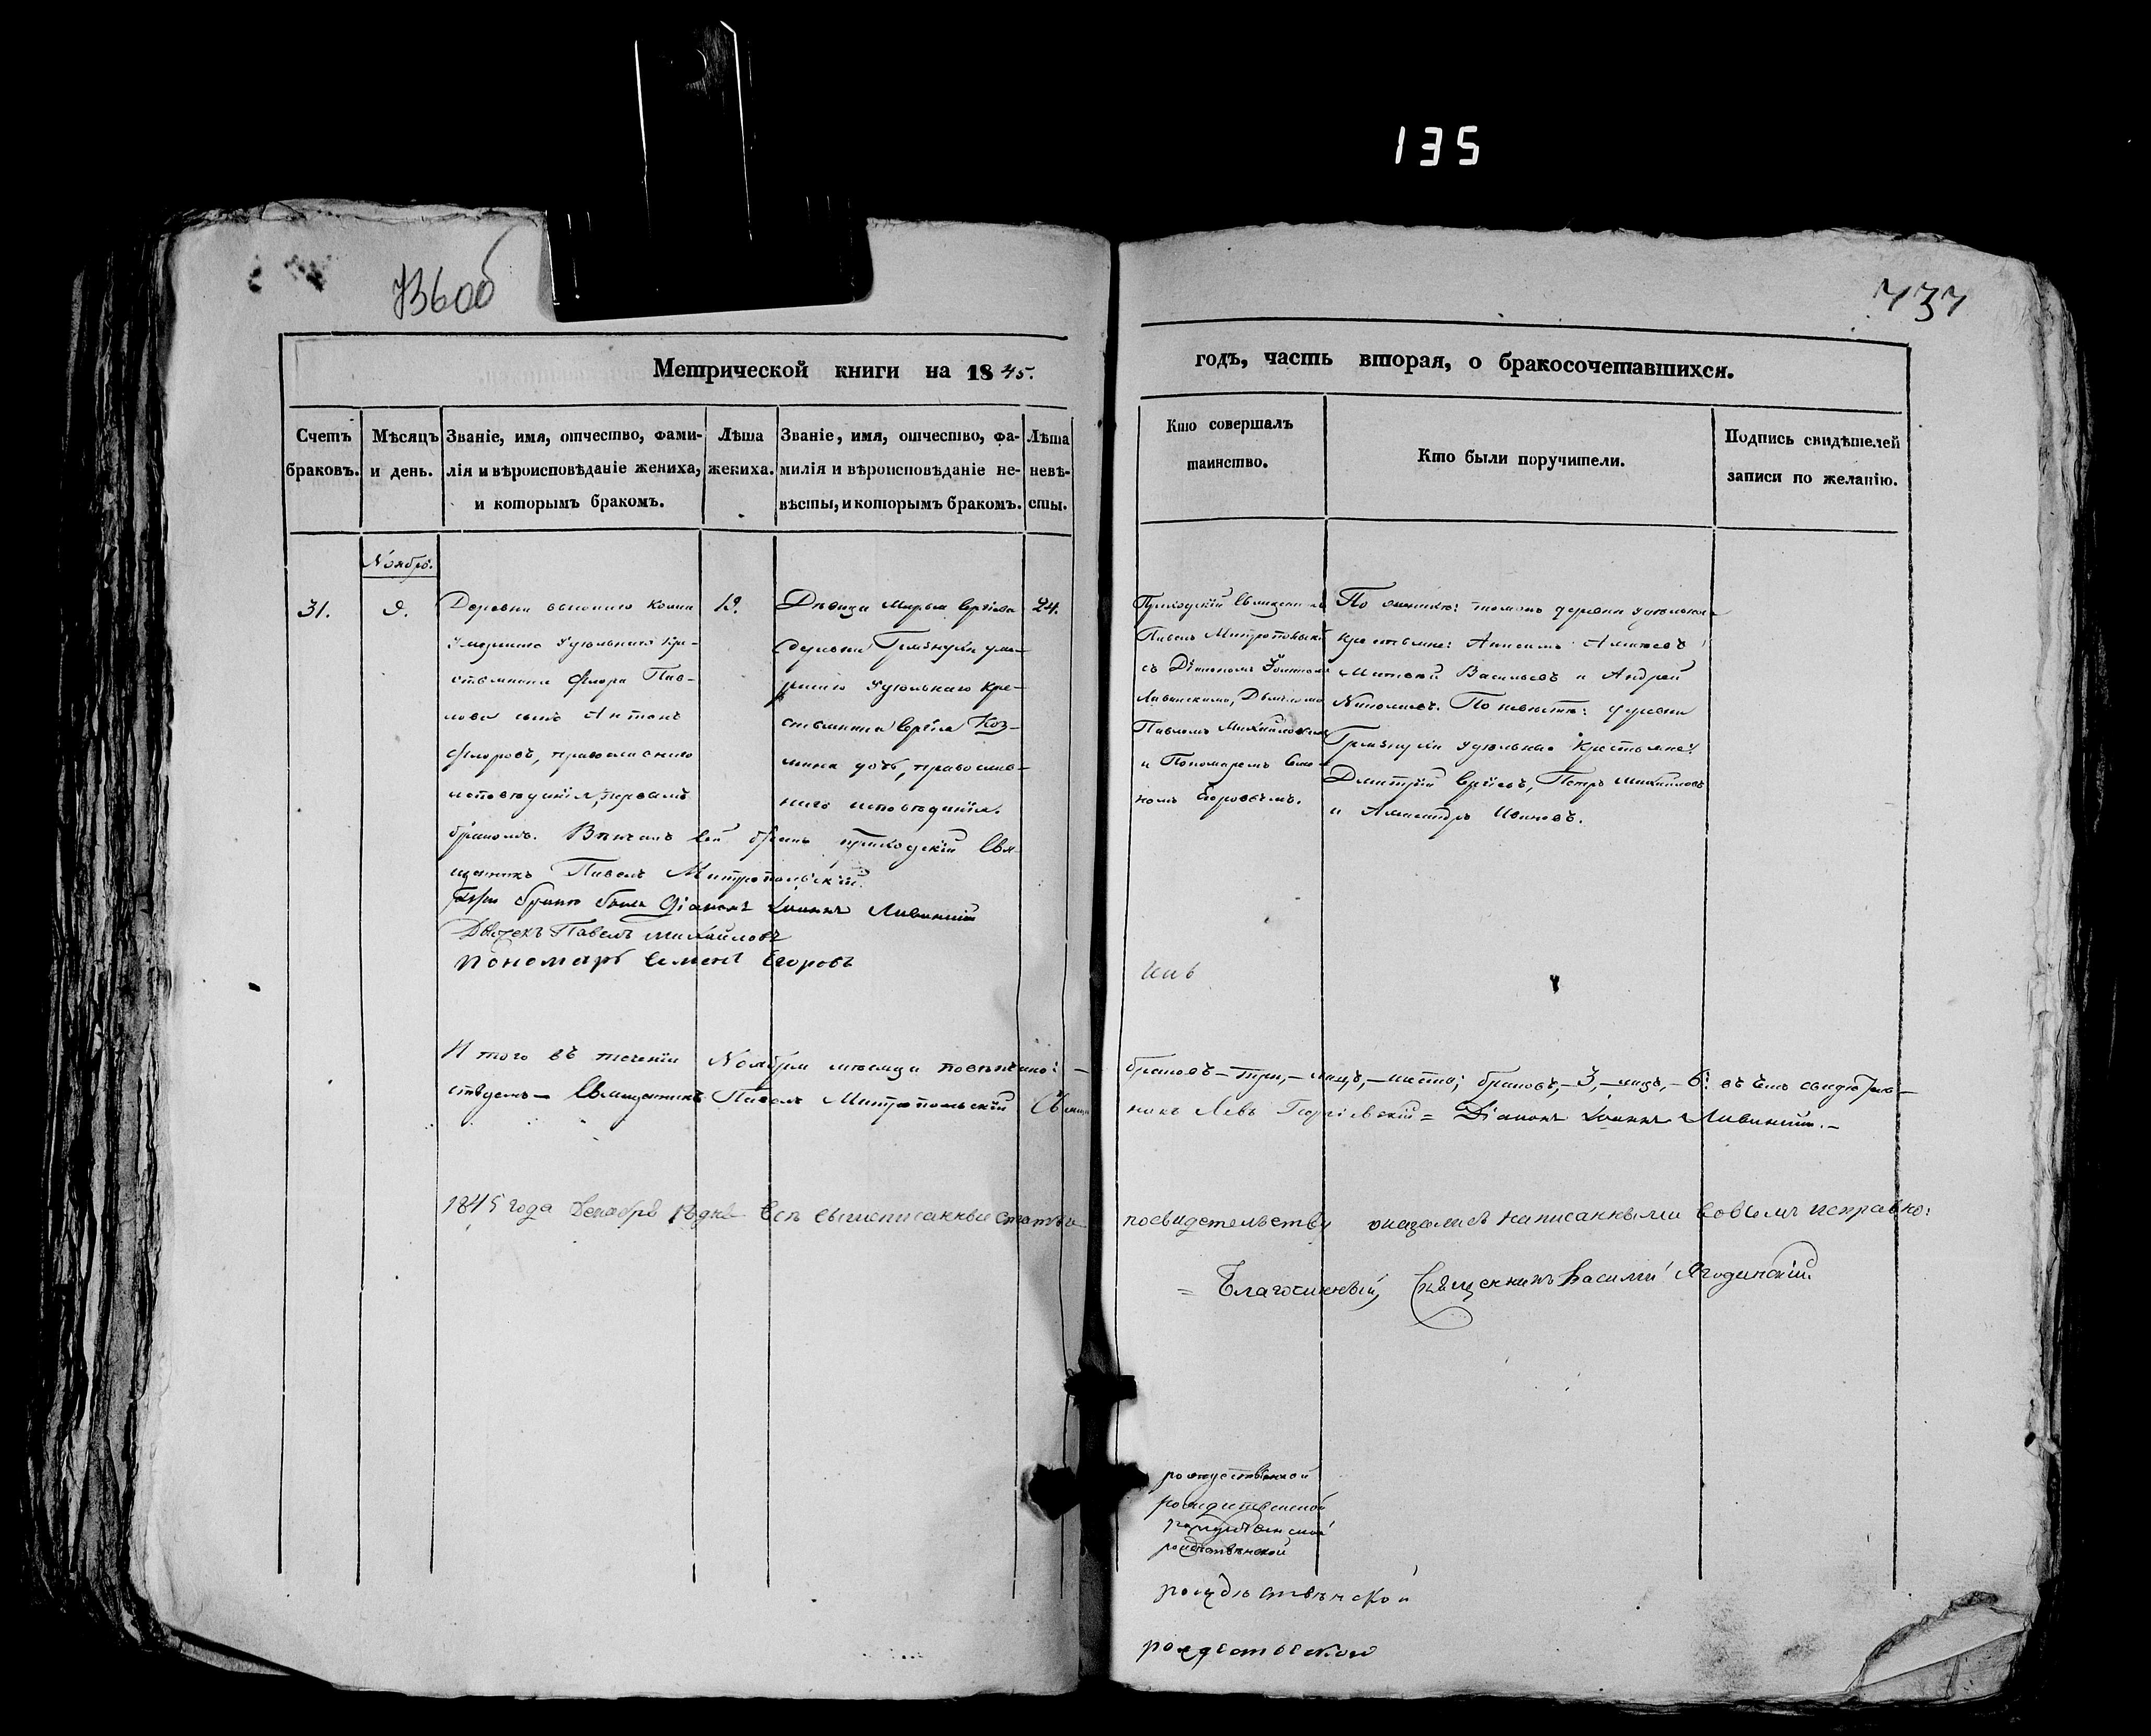 135
736об
737
Метрической книги на 1845.
годъ, часть вторая, о бракосочетавшихся.
Счетъ браковъ.
Мѣсяцъ и день.
Званіе, имя, отчество, фами-
лія и вѣроисповѣданіе жениха,
и которымъ бракомъ.
Лѣта
жениха.
Званіе, имя, отчество, фа-
милія и вѣроисповѣданіе не-
вѣсты, и которымъ бракомъ.
Лѣта
невѣ-
сты.
Кто совершалъ
таинство.
Кто были поручители.
Подпись свидѣтелей
записи по желанію.
Ноября.
31.
9.
Деревни
умершаго Удѣльнаго кре-
стьянина Флора Пав-
лова сынъ Антонъ
Флоровъ, православнаго
исповѣданія, первымъ
бракомъ. Вѣнчалъ сей бракъ приходскій Свя-
щенникъ Павелъ Митропольскій.
При бракѣ былъ Діаконъ Іоаннъ Ливанскій
Дьячекъ Павелъ Михайловъ
Пономарь Семенъ Егоровъ
19.
Дѣвица Марья Сергіева
деревни Грязнухи уме-
ршаго Удѣльнаго кре-
стьянина Сергія Коз-
мина дочь, православ-
наго исповѣданія.
24.
Приходскій Священникъ
Павелъ Митропольскій
съ Діакономъ Іоанномъ
Ливанскимъ, Дьячкомъ
Павломъ Михайловымъ
и Пономаремъ Семе-
номъ Егоровымъ.
По женихѣ: тояжъ деревни удѣльные
крестьяне: Анисимъ Алексеевъ
Матвей Васильевъ и Андрей
Николаевъ. По невѣстѣ: деревни
Грязнухи удѣльные крестьяне:
Дмитрій Сергіевъ, Петръ Михайловъ
и Александръ Ивановъ.
Итого въ теченіи Ноября мѣсяца повѣнчано: браковъ – три, – лицъ, – шесть; браковъ, – 3, – лицъ, – 6: въ чемъ свидетель-
ствуемъ – Священникъ Павелъ Митропольскій Священникъ Левъ Георгіевскій = Діаконъ Іоаннъ Ливанскій. –
1845 года Декабря дня Всѣ вышеписанныя статьи по свидетельству оказались написанными совсемъ исправно:
= Благочинный, Священникъ Василий Ягодинскій.
рождественской
рождественской
рождественской
рождествѣнской
рождествѣнской
рождественской